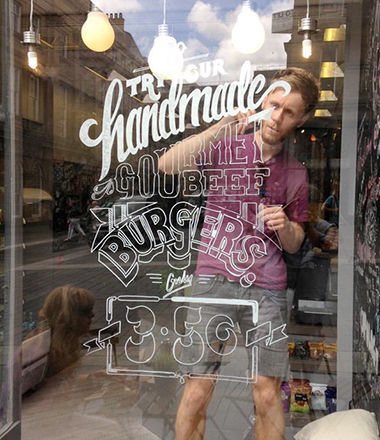 TRY OUR
handmade
GOURMET
BEEF
BURGERS
3.50